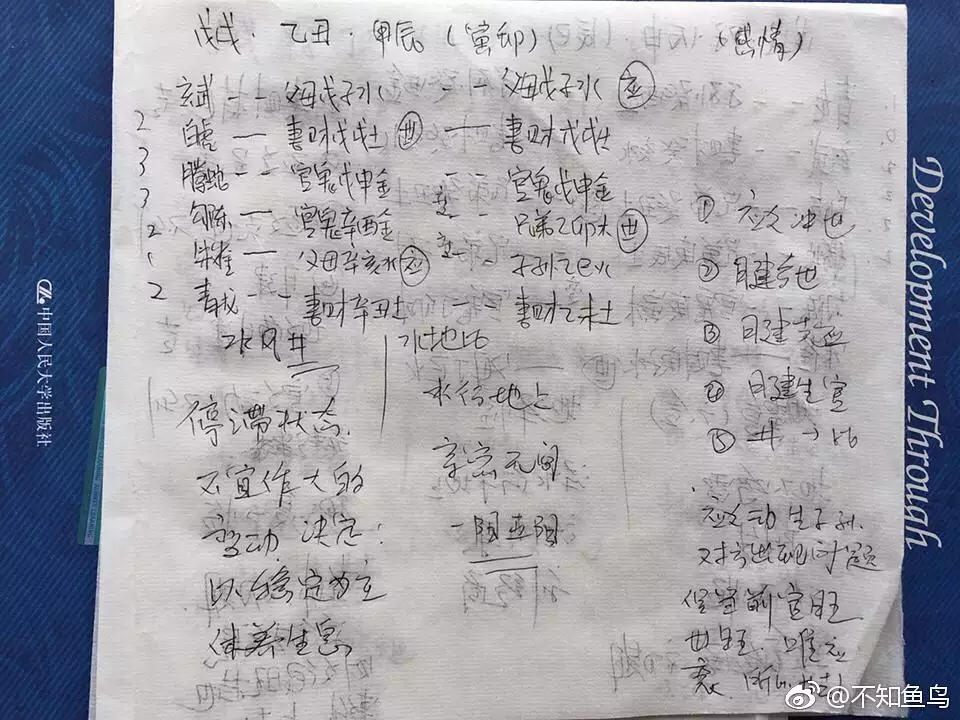 戊戌·乙丑·甲辰（寅卯）（感情）
玄武 - - 父母戊子水 - - 父母戊子水 应
2 白虎 — 妻财戊戌土 世 — 妻财戊戌土
3 腾蛇 - - 官鬼戊申金 - - 官鬼戊申金
3 勾陈 — 官鬼辛酉金 - - 兄弟乙卯木 世
2 朱雀 — 父母辛亥水 应 - - 子孙乙巳火
1
2 青龙 - - 妻财辛丑土 - 妻财乙未土
水风井
停滞状态
不宜作大的
变动 决定:
以稳定为主
休养生息
水地比
水行地上
亲密无间
一阳五阴
① 应冲世
② 日建合世
③ 日建克应
④ 日建生官
⑤ 井→比
应动生子孙.
对方出现问题
但 前官旺
世旺. 唯应
衰.
Development Through
中国人民大学出版社
@不知鱼鸟